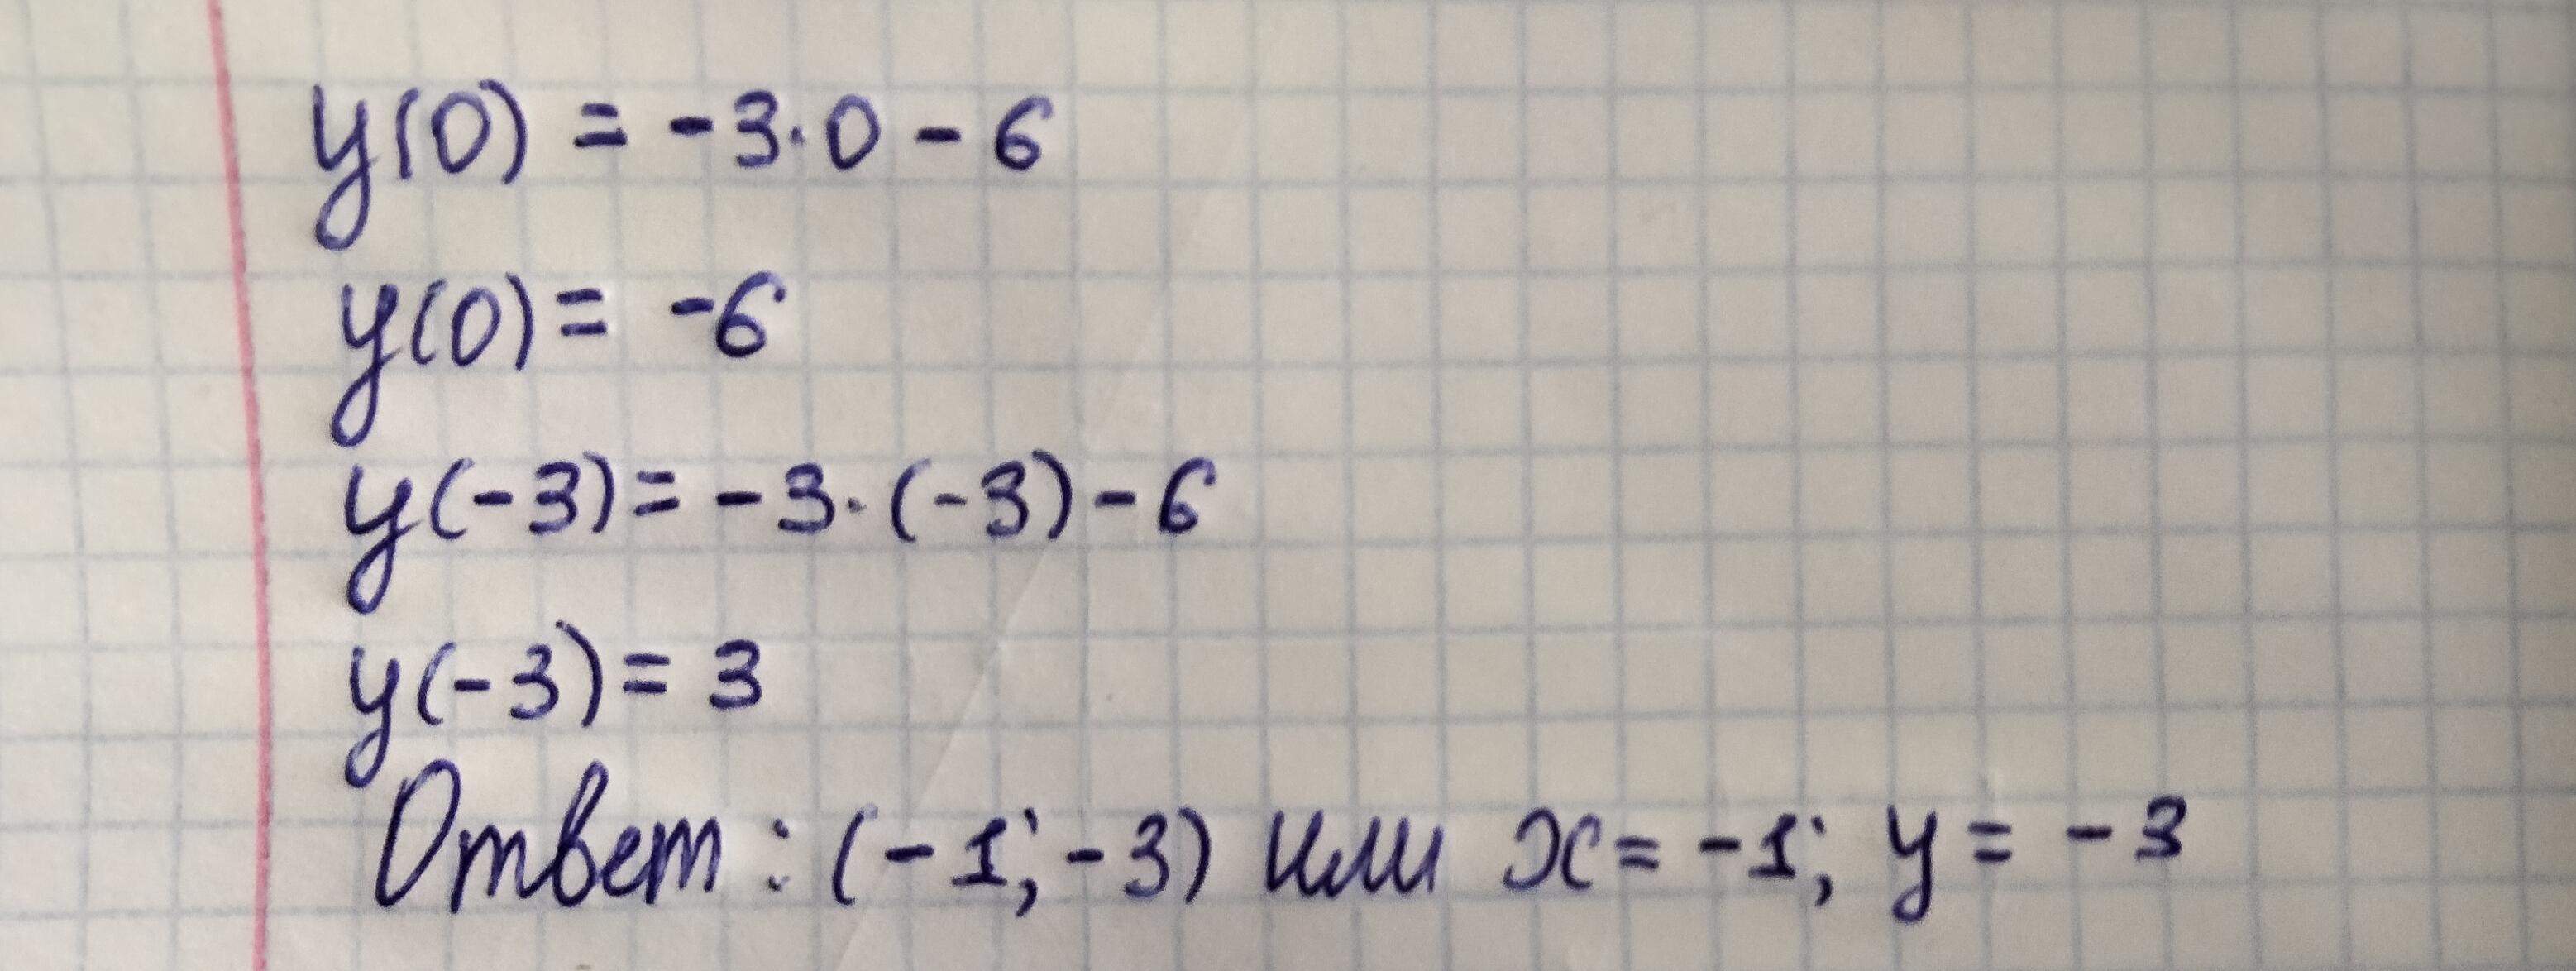 y(0) = -3·0 - 6
y(0) = -6
y(-3) = -3·(-3) - 6
y(-3) = 3
Ответ: (-1; -3) или x = -1; y = -3